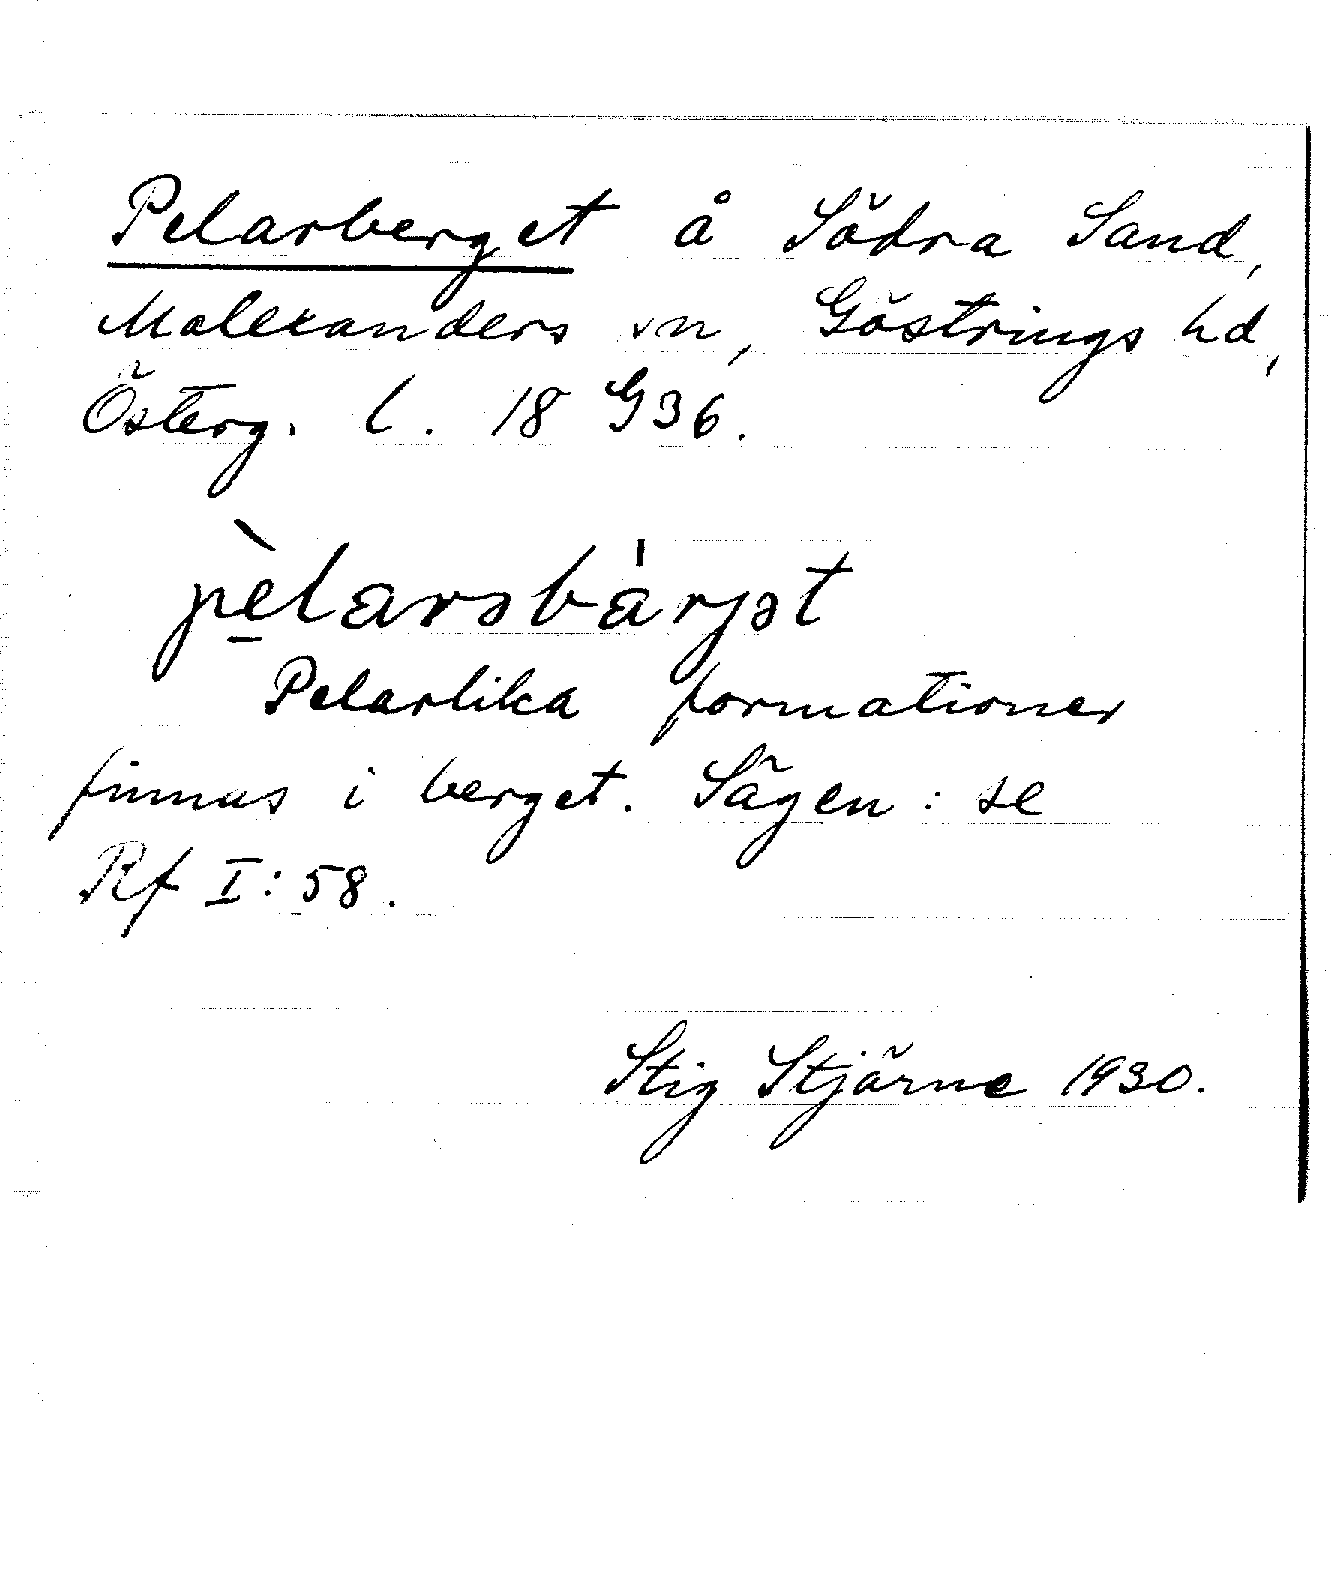 Pelarberget å Södra Sand,
Malexanders sn, Göstrings hd,
Österg. l. 18 G36.
pèlarsbárjət
Pelarlika formationer
finnas i berget. Sägen: se
Rf I:58.
Stig Stjärne 1930.